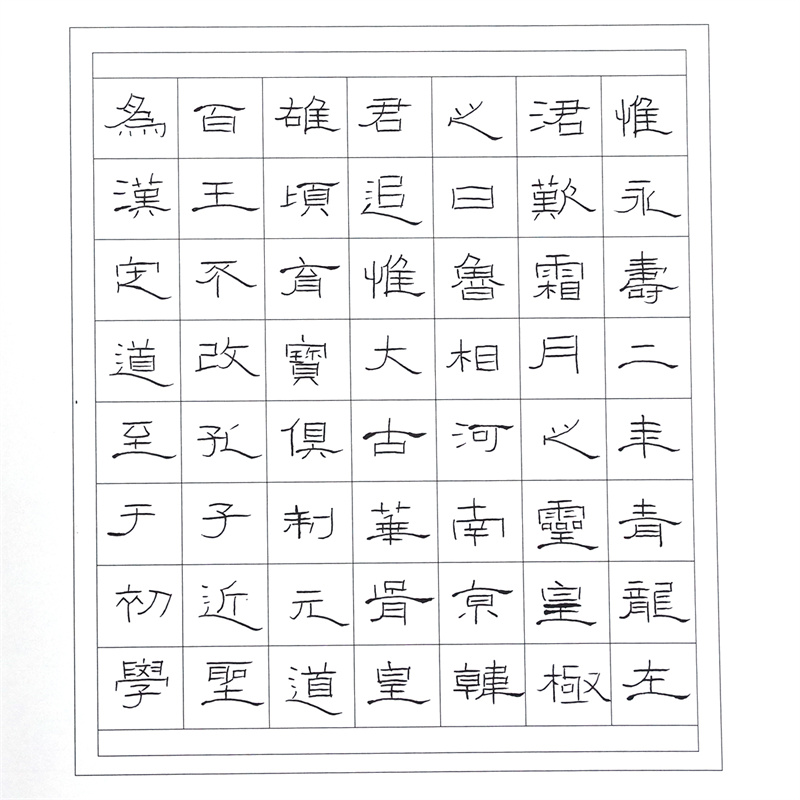 惟永壽二年青龍在
涒歎霜月之靈皇極
之日魯相河南京韓
君追惟大古華胥皇
雄頃育寶俱制元道
百王不改孔子近聖
為漢定道至于初學